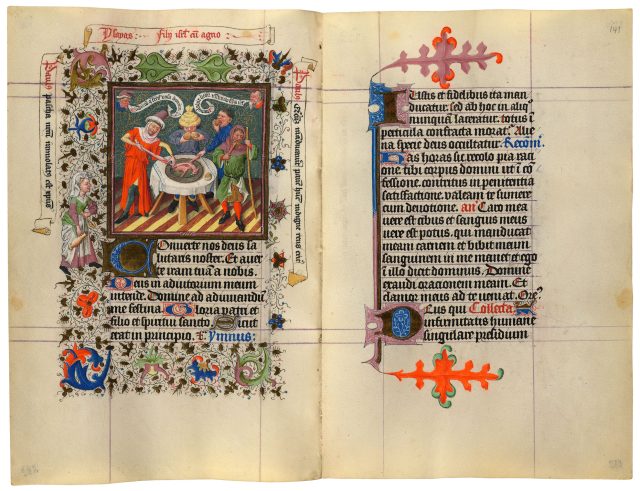 Ysayas: fily isrl' cũ agno:
pascha nr̃m immolatus est
Converte nos deus sa
lutaris noster. Et aver
te iram tuã a nobis.
Deus in adiutorium meum
intende. Domine ad adiuvandũ
me festina. Gloria patri et
filio et spiritui sancto. Sicut
erat in principio. Ymnus:
141
Iustis et fidelibus ita man
ducatur. sed ab hoc in aliq̃
nunquã laceratur. totus ĩ
p̃ticula confracta morat.' Alie
na specie deus occultatur. Recom̃.
Has horas recolo pia raci
one. tibi corpus domini ut ĩ cõ
fessione. contritus in penitentia
satisfactione. valeam te sumere
cum devotione. an̄ Caro mea
vere est cibus et sanguis meus
vere est potus. qui manducat
meam carnem et bibit meum
sanguinem in me manet et ego
ĩ illo dicit dominus. Domine
exaudi oracionem meam. Et
clamor meus ad te veniat. Ore'
Deus qui Collecta
infirmitatis humane
singulare presidium